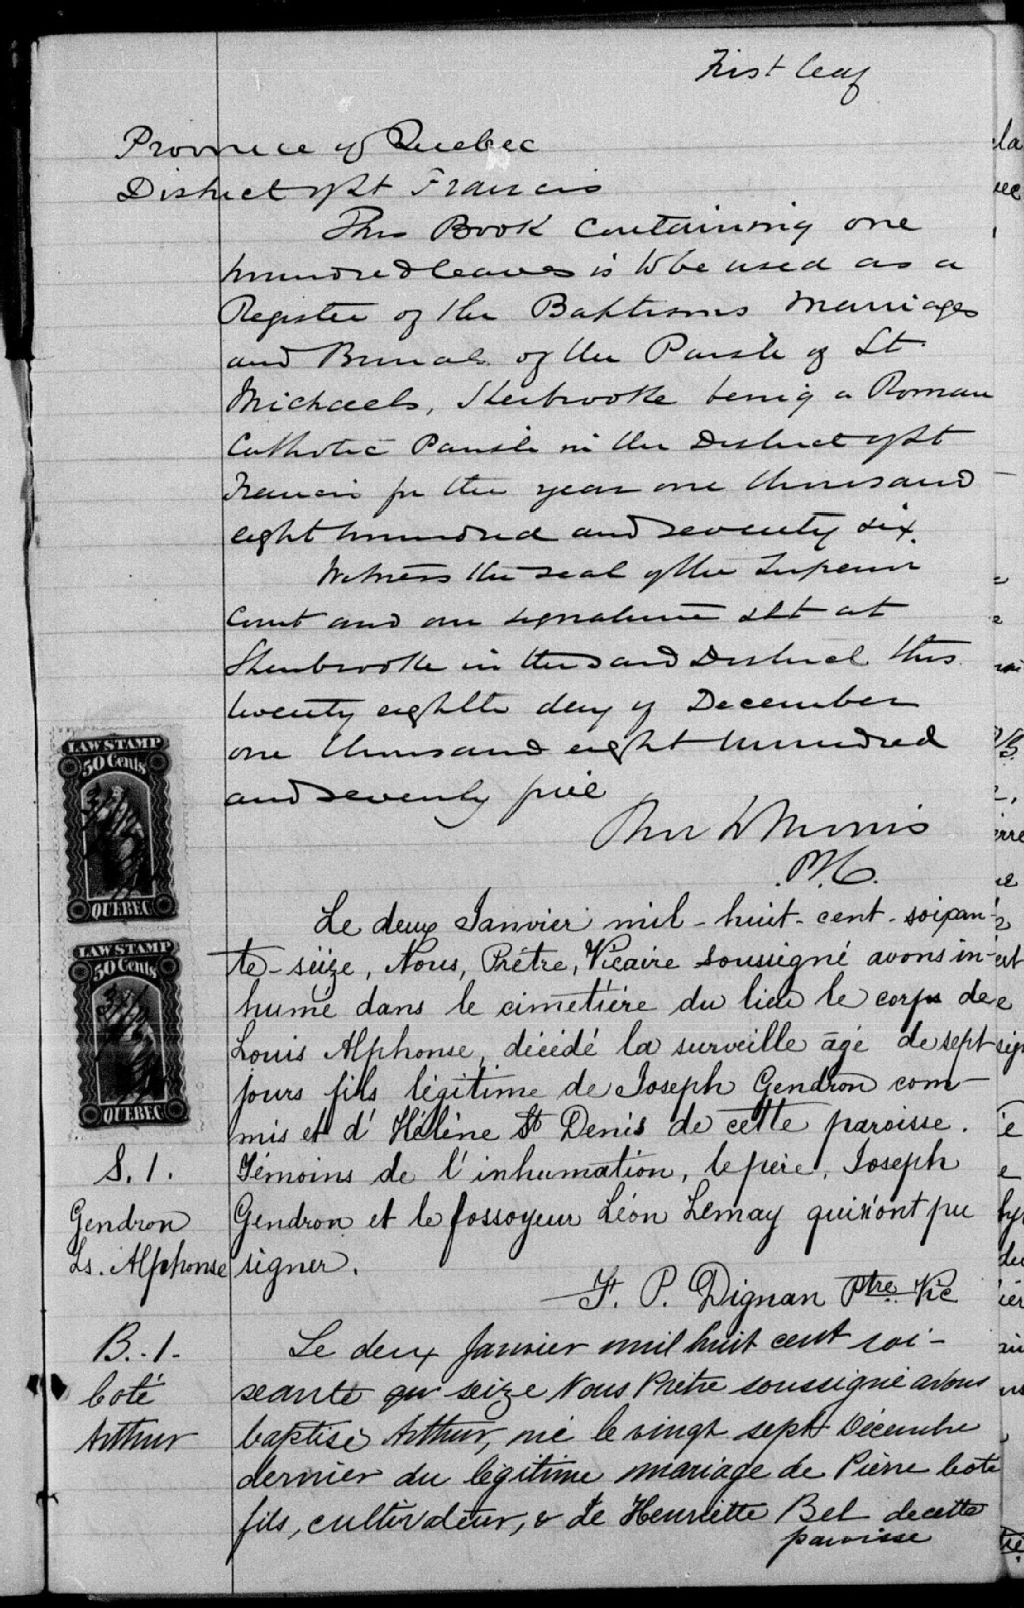 First leaf
Province of Quebec
District of St Francis
This Book containing one
hundred leaves is to be used as a
Register of the Baptisms Marriages
and Burials of the Parish of St
Michaels, Sherbrooke being a Roman
Catholic Parish in the District of St
Francis for the year one thousand
eight hundred and seventy six.
Witness the seal of the Superior
Court and our signature set at
Sherbrooke in the said District this
twenty eighth day of December
one thousand eight hundred
and seventy five
P.S.C.
LAW STAMP
50 Cents
QUEBEC
LAW STAMP
50 Cents
QUEBEC
Le deux Janvier mil-huit-cent-soixan-
te-seize, Nous, Prêtre, Vicaire soussigné avons in-
humé dans le cimetière du lieu le corps de
Louis Alphonse, décédé la surveille âgé de sept
jours fils légitime de Joseph Gendron com-
mis et d'Hélène St Denis de cette paroisse.
S. 1.
Gendron
Ls. Alphonse
Témoins de l'inhumation, le père, Joseph
Gendron et le fossoyeur Léon Lemay qui n'ont pu
signer.
F. P. Dignan Ptre Vic
B.-1-
Coté
Arthur
Le deux Janvier mil huit cent soi-
xante seize Nous Prêtre soussigné avons
baptisé Arthur, né le vingt sept Décembre
dernier du légitime mariage de Pierre Coté
fils, cultivateur, & de Henriette Bel de cette
paroisse